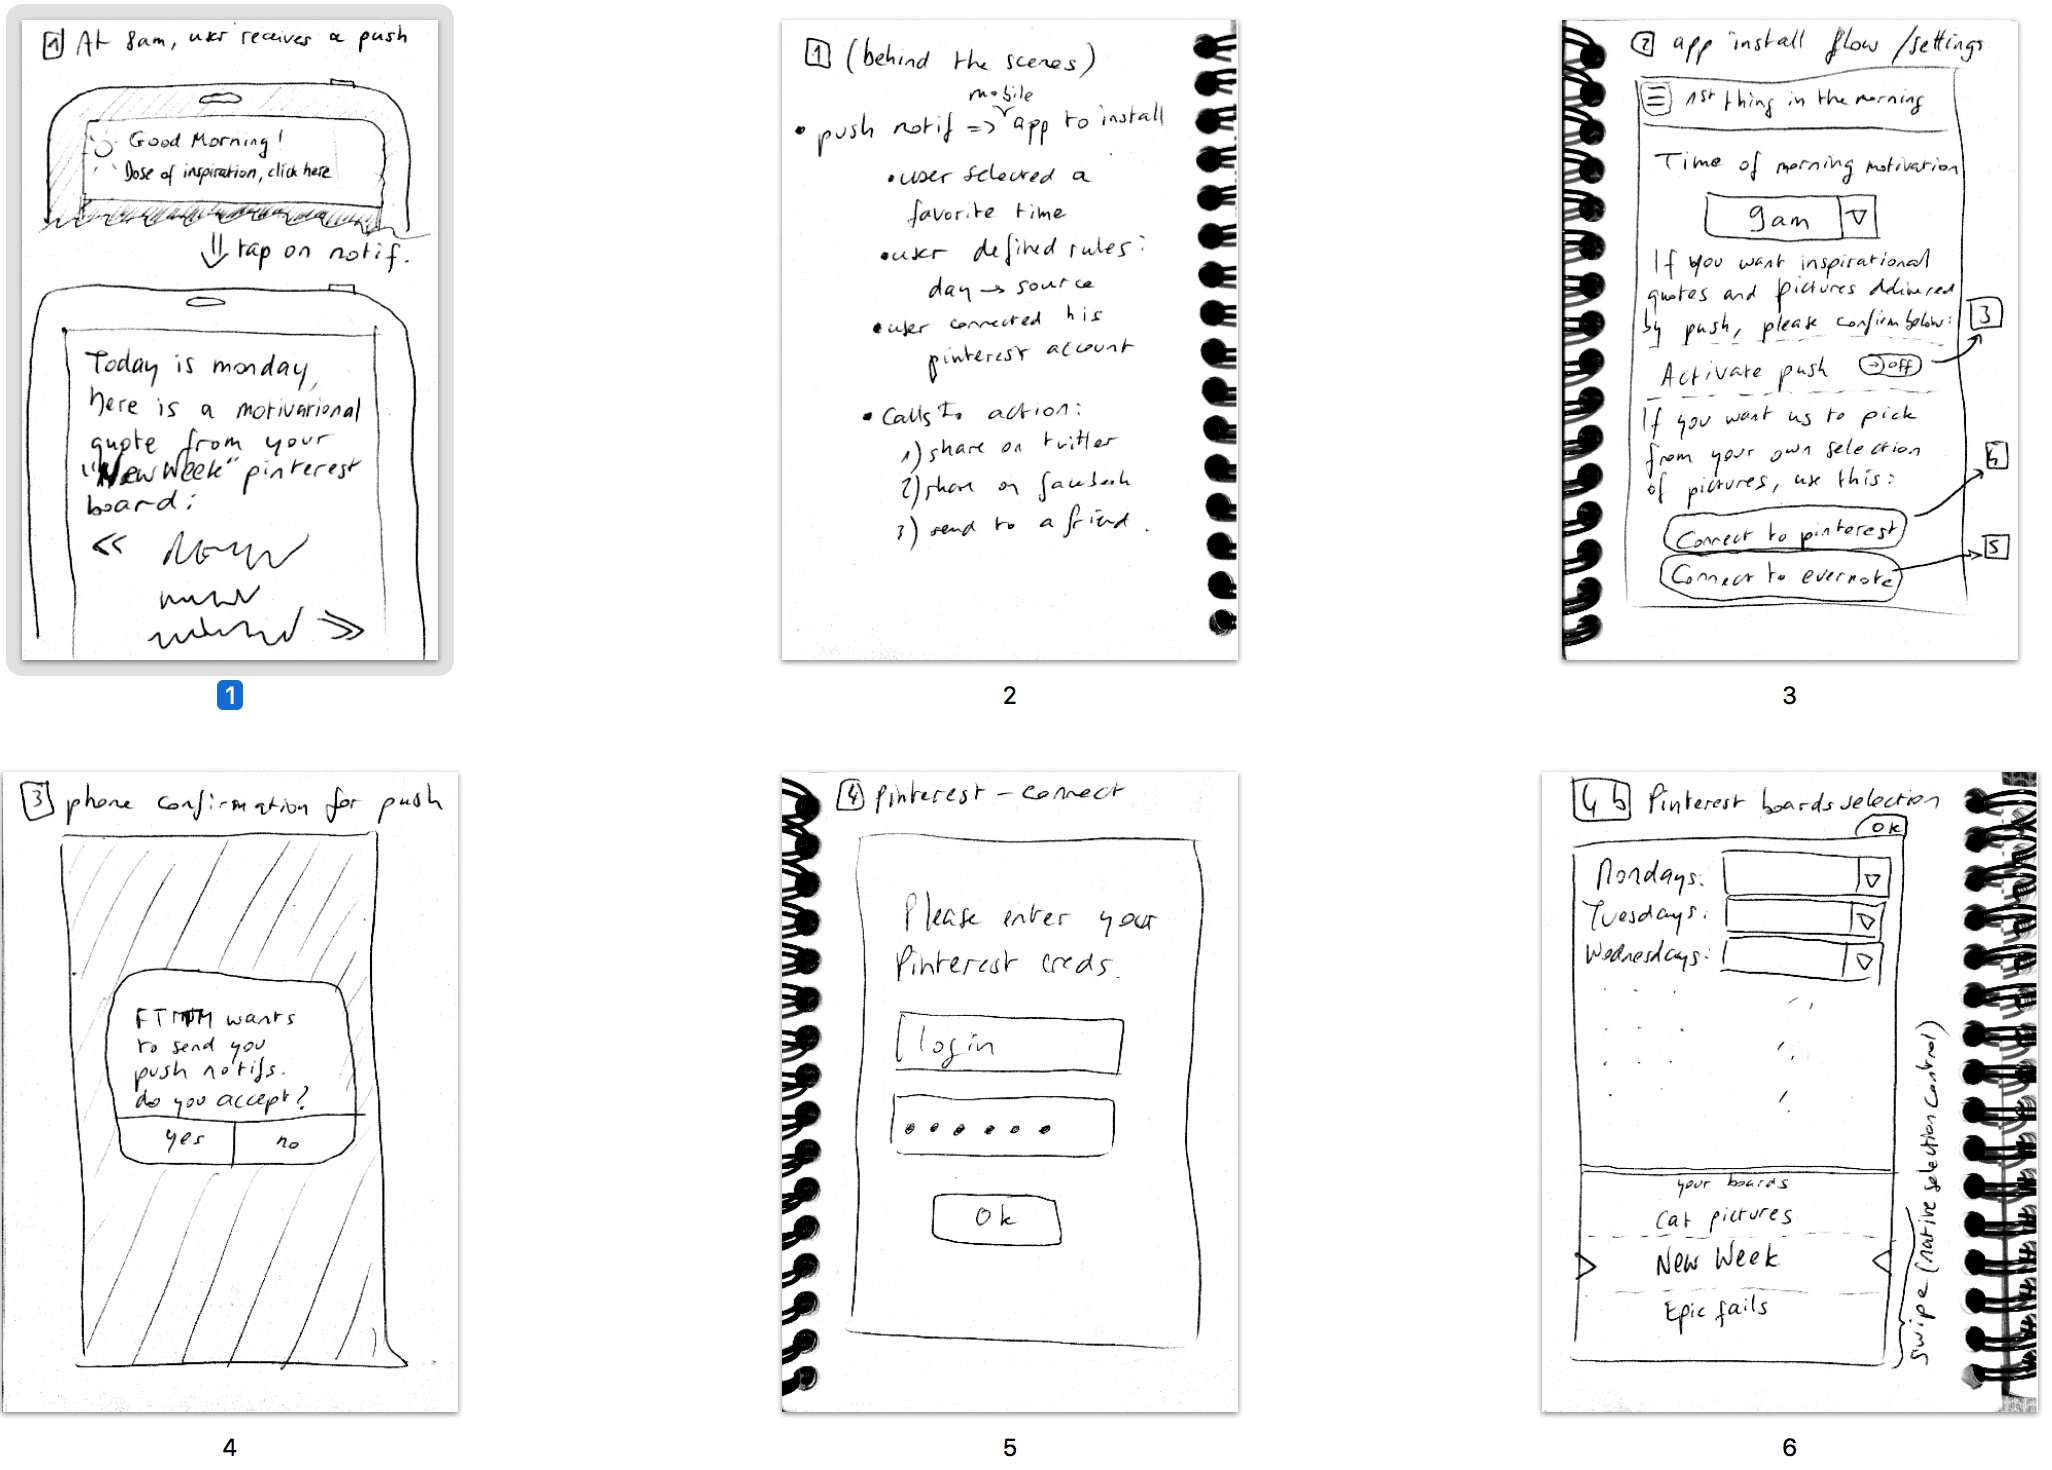 1 At 8am, user receives a push
Good Morning!
Dose of inspiration, click here
tap on notif.
Today is monday,
here is a motivational
quote from your
"New Week" pinterest
board:
<<
>>
1
1 (behind the scenes)
mobile
• push notif => app to install
• user selected a
favorite time
• user defined rules:
day → source
• user connected his
pinterest account
• Calls to action:
1) share on twitter
2) share on facebook
3) send to a friend.
2
2 app install flow /settings
1st thing in the morning
Time of morning motivation
9am
If you want inspirational
quotes and pictures delivered
by push, please confirm below:
3
Activate push off
If you want us to pick
from your own selection
of pictures, use this:
4
Connect to pinterest
5
Connect to evernote
3
3 phone confirmation for push
FTITM wants
to send you
push notifs.
do you accept?
yes no
4
4 Pinterest - connect
Please enter your
Pinterest creds.
login
• • • • • •
Ok
5
4b Pinterest boards selection
Ok
Mondays:
Tuesdays:
Wednesdays:
your boards
Cat pictures
New Week
Epic fails
Swipe (native selection control)
6